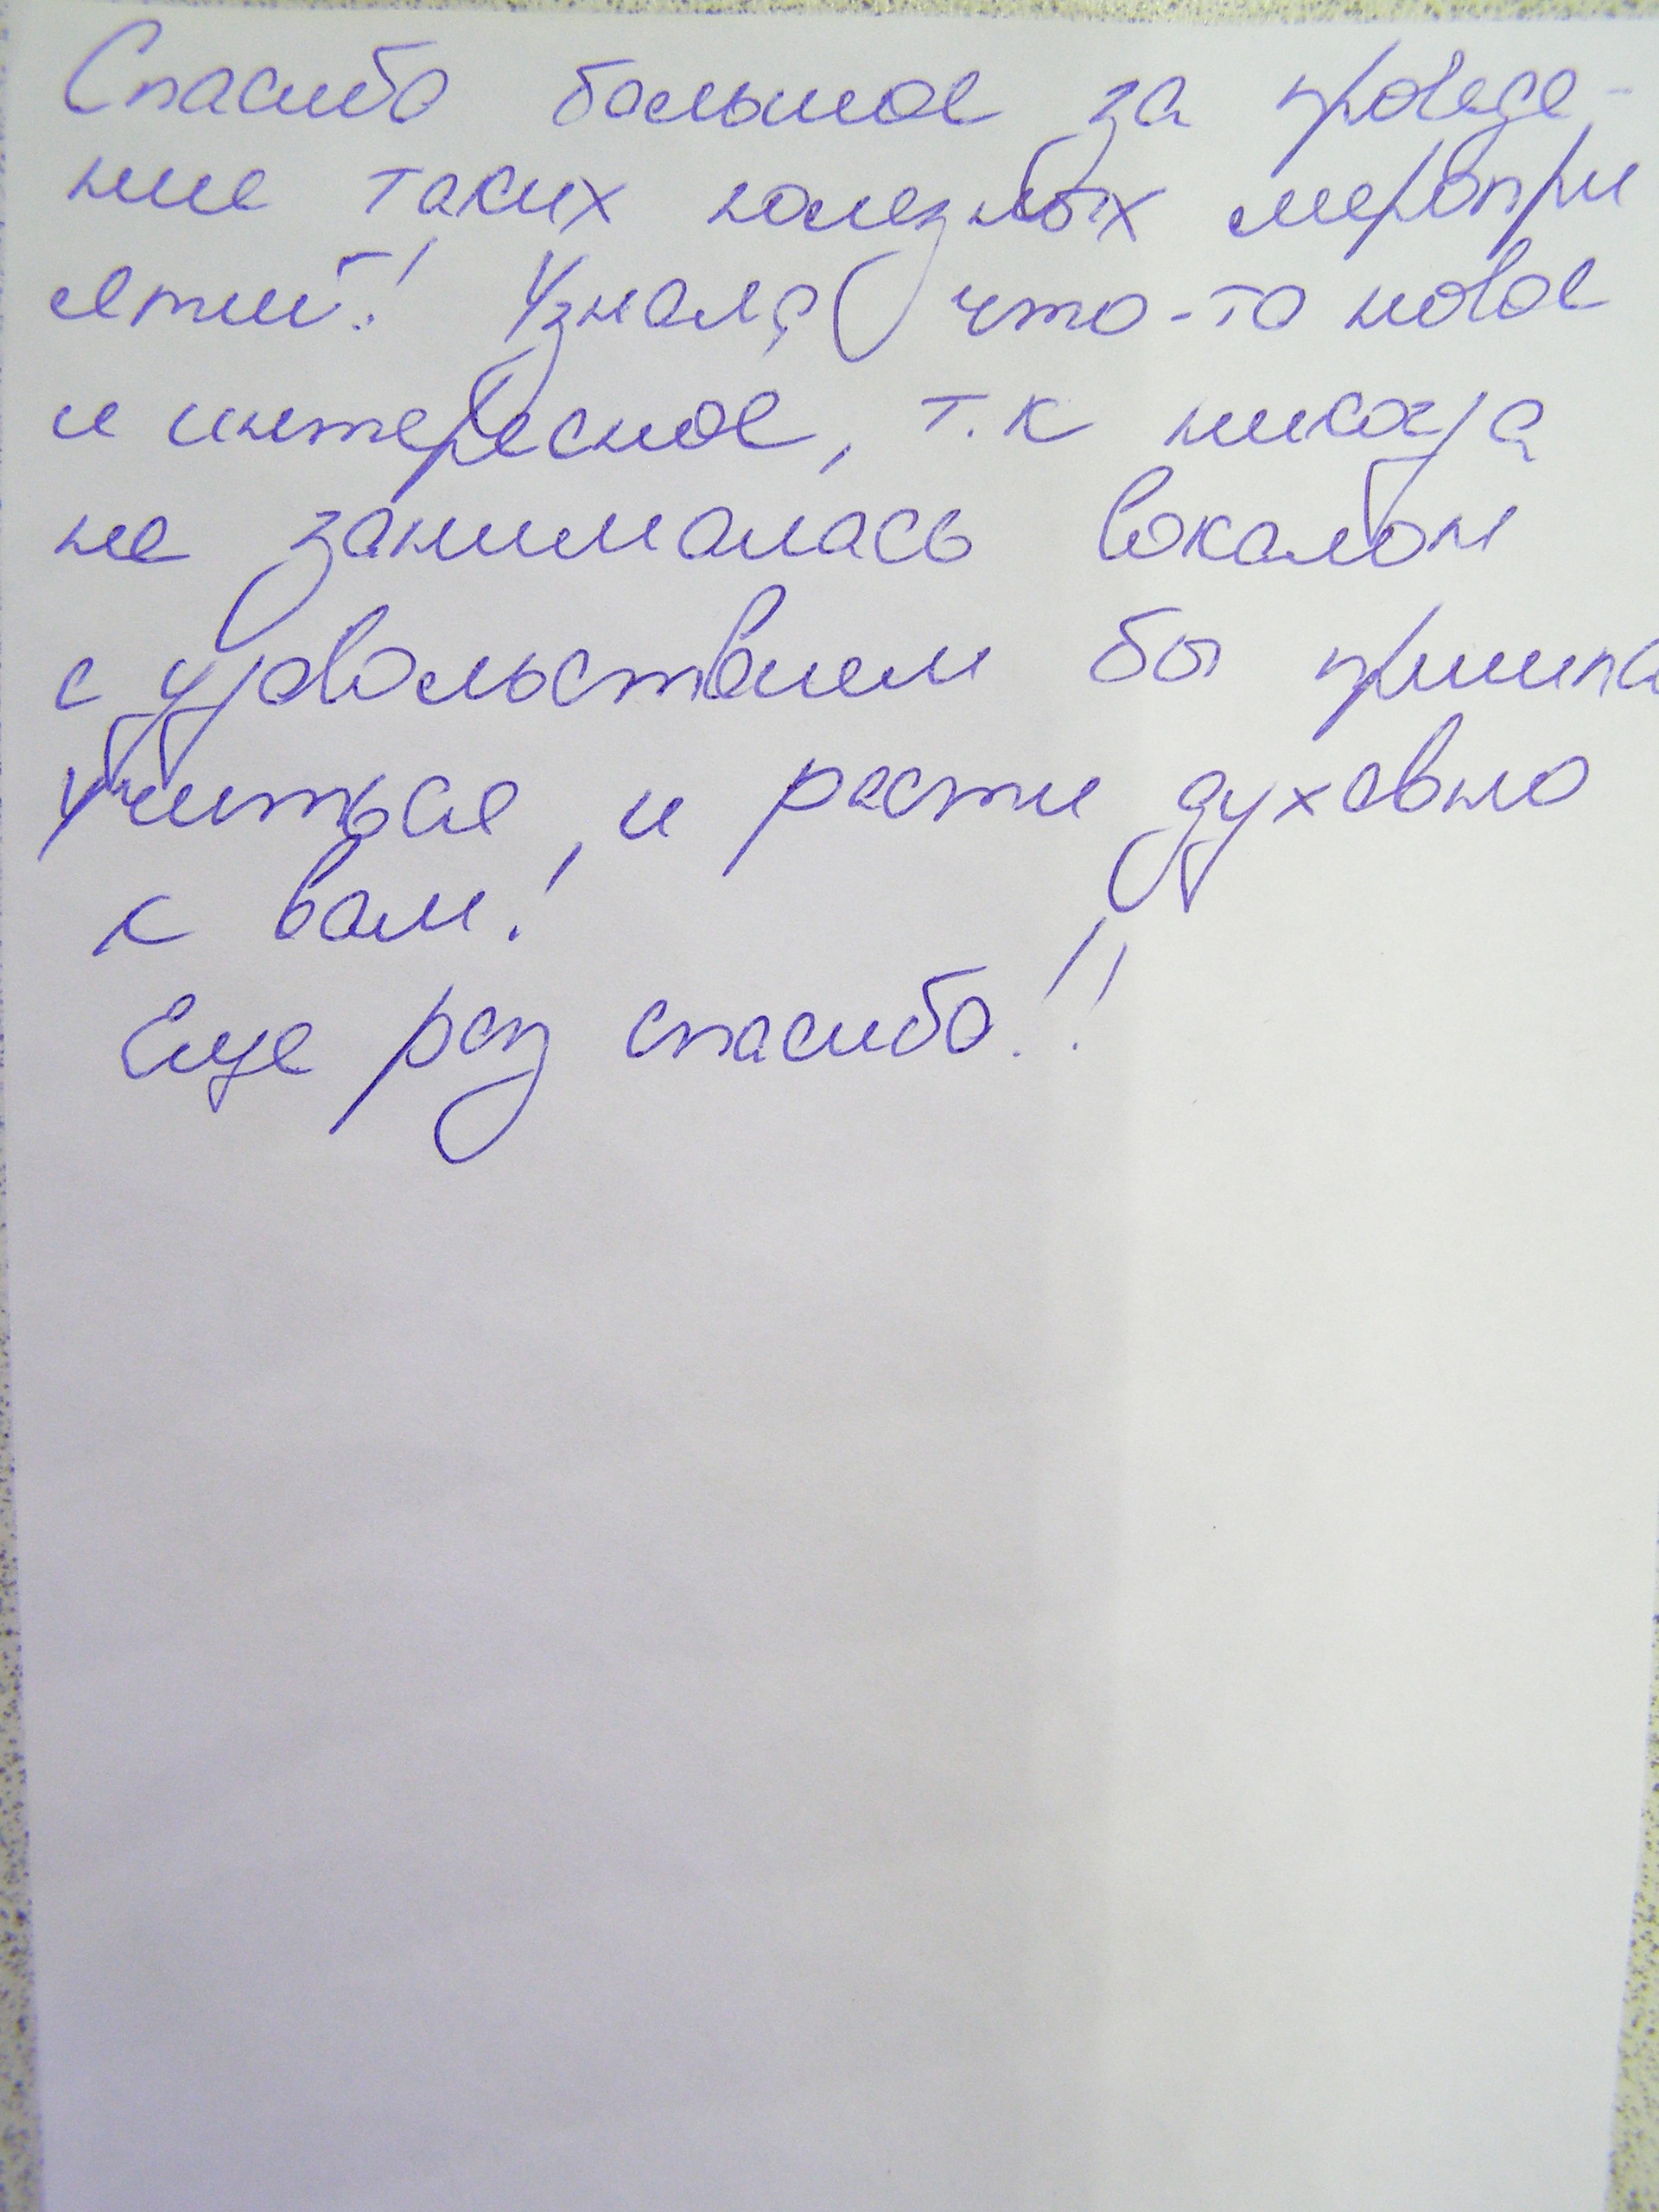 Спасибо большое за проведе-
ние таких полезных меропри
ятий! Узнала что-то новое
и интересное, т.к никогда
не занималась вокалом
с удовольствием бы пришла
учиться, и расти духовно
к вам!
Еще раз спасибо!!